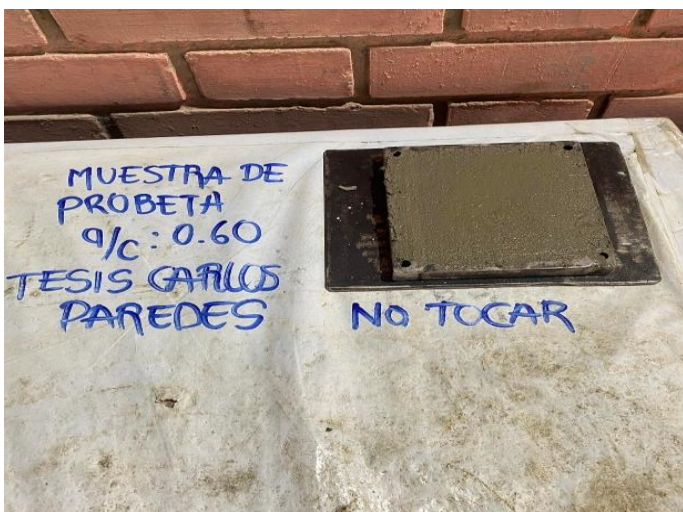 MUESTRA DE
PROBETA
a/c: 0.60
TESIS CARLOS
PAREDES
NO TOCAR